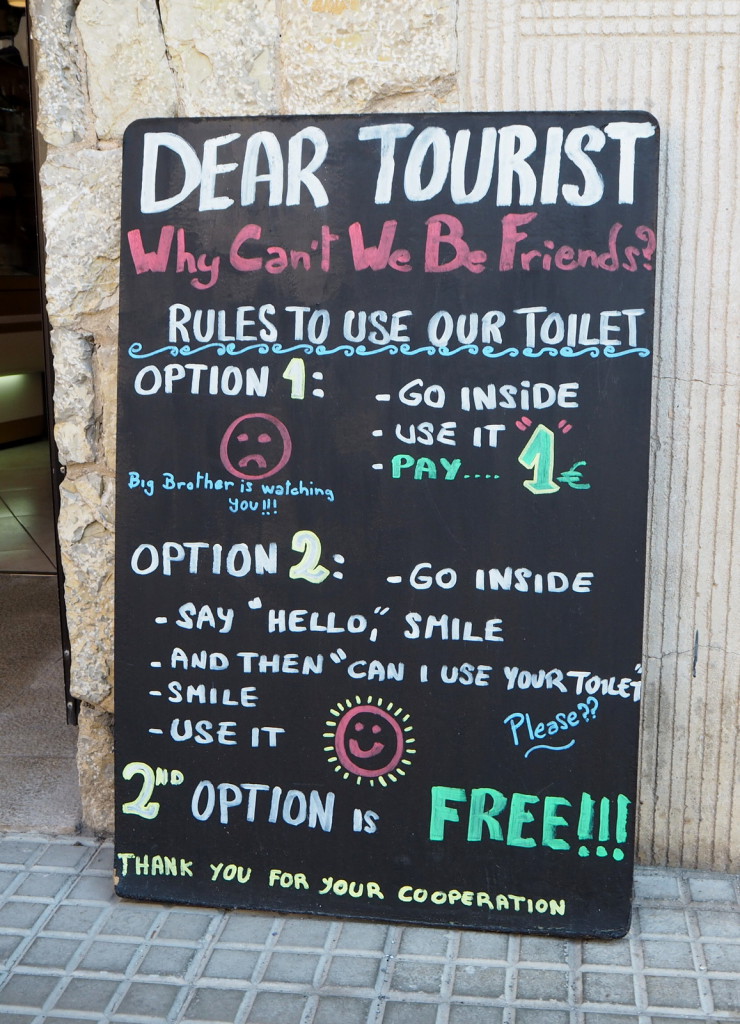 DEAR TOURIST
Why Can't We Be Friends?
RULES TO USE OUR TOILET
OPTION 1:
- GO INSIDE
- USE IT
- PAY.... "1"€
Big Brother is watching
you!!!
OPTION 2:
- GO INSIDE
- SAY "HELLO," SMILE
- AND THEN "CAN I USE YOUR TOILET"
Please??
- SMILE
- USE IT
2ND OPTION IS FREE!!!
THANK YOU FOR YOUR COOPERATION